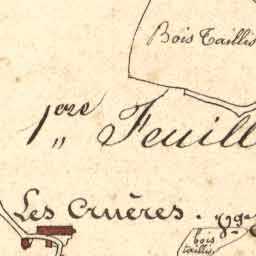 Bois Taillis
1ere Feuill
Les Cruères.
bois
taillis